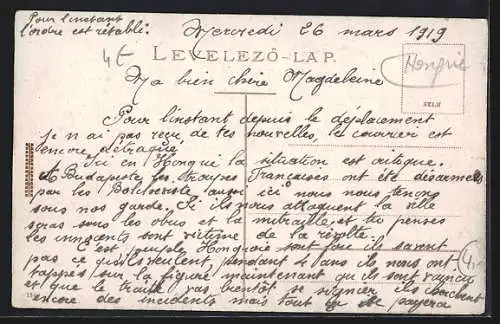 Pour l'instant
l'ordre est rétabli.
Mercredi 26 mars 1919
4t
LEVELEZŐ-LAP.
Hongrie
Ma bien chère Magdeleine
BÉLYEG
Pour l'instant depuis le déplacement
je n'ai pas reçu de tes nouvelles, le courrier est
encore détraqué.
Ici en Hongrie la situation est critique.
A Budapeste les troupes Françaises ont été désarmées
par les Bolcheviste aussi ici nous nous tenons
sous nos garde. Si ils nous attaquent la ville
sera sous les obus et la mitraille et tu penses
les innocents sont victime de la révolte.
est peuple Hongrois sont fou ils savent
pas ce qu'ils veulent, pendant 4 ans ils nous ont
tapper sur la figure maintenant qu'ils sont vaincu
et que le traité vas bientôt se signer ils cherchent
encore des incidents mais tout ça se payera